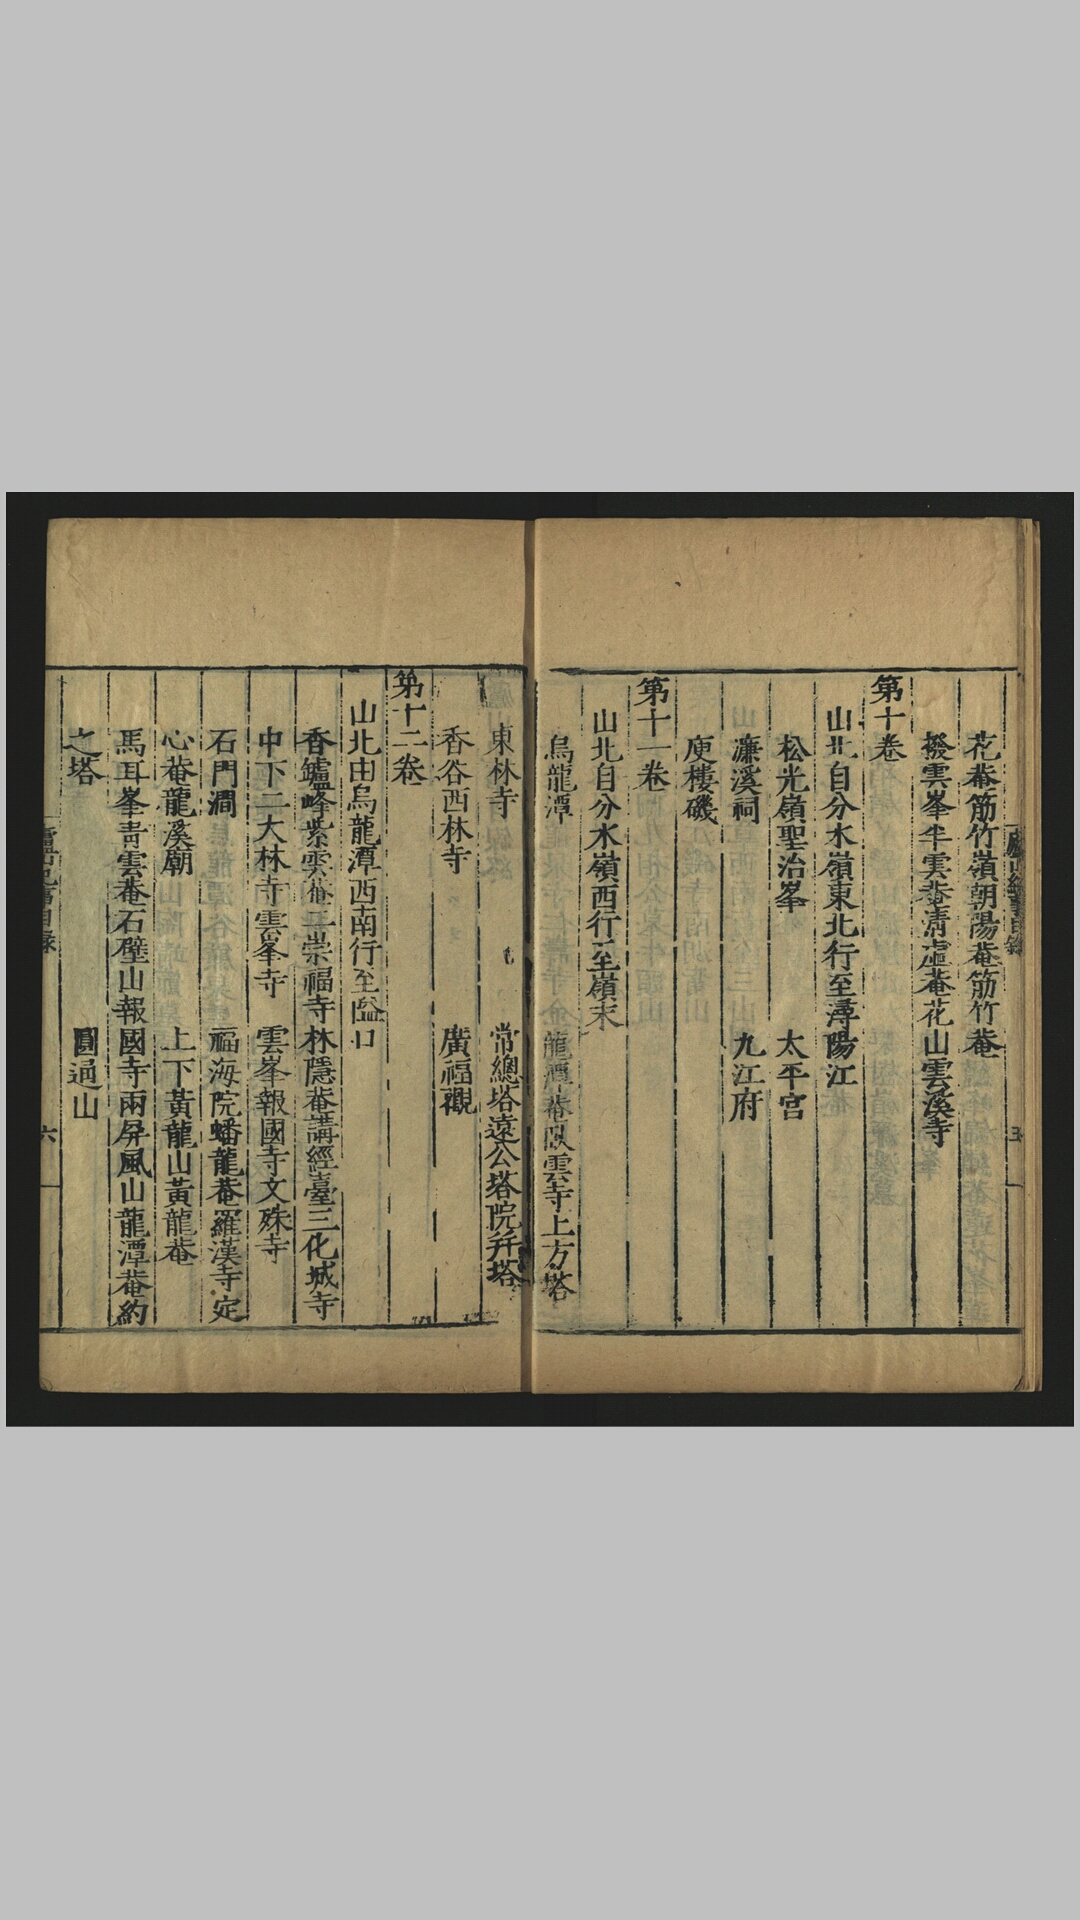 花菴筋竹嶺朝陽菴筋竹菴
撥雲峯半雲菴清虛菴花山雲溪寺
第十卷
山北自分水嶺東北行至潯陽江
松光嶺聖治峯 太平宮
濂溪祠 九江府
庾樓磯
第十一卷
山北自分水嶺西行至嶺末
烏龍潭 龍潭菴臥雲寺上方塔
東林寺 常總塔遠公塔院弁塔
香谷西林寺 廣福觀
第十二卷
山北由烏龍潭西南行至湓口
香鑪峰紫雲菴 崇福寺林隱菴講經臺三化城寺
中下二大林寺雲峯寺 雲峯報國寺文殊寺
石門澗 福海院蟠龍菴羅漢寺定
心菴龍溪廟 上下黃龍山黃龍菴
馬耳峯靑雲菴石壁山報國寺兩屏風山龍潭菴約
之塔 圓通山
六